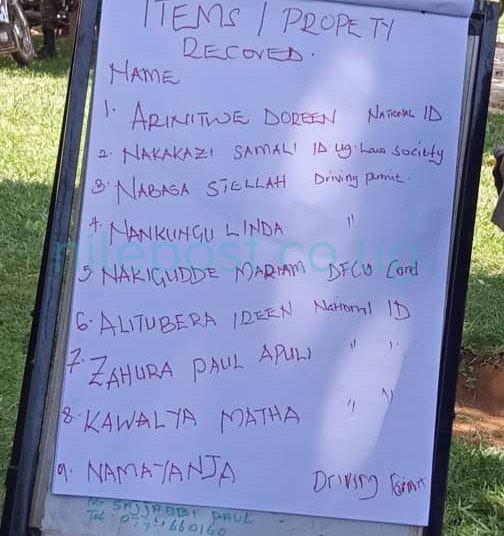 ITEMS / PROPETY
RECOVED.
NAME
1. ARINITWE DOREEN NATIONAL ID
2. NAKAKAZI SAMALI ID Ug. Law Society
3. NABASA STELLAH Driving permit.
4. NANKUNGU LINDA "
nilepost.co.ug
5. NAKIGUDDE MARIAM DFCU Card
6. ALITUBERA IDEEN National ID
7. ZAHURA PAUL APULI " "
8. KAWALYA MATHA " "
9. NAMAYANJA Driving Permit
PAUL
Tel: 660160